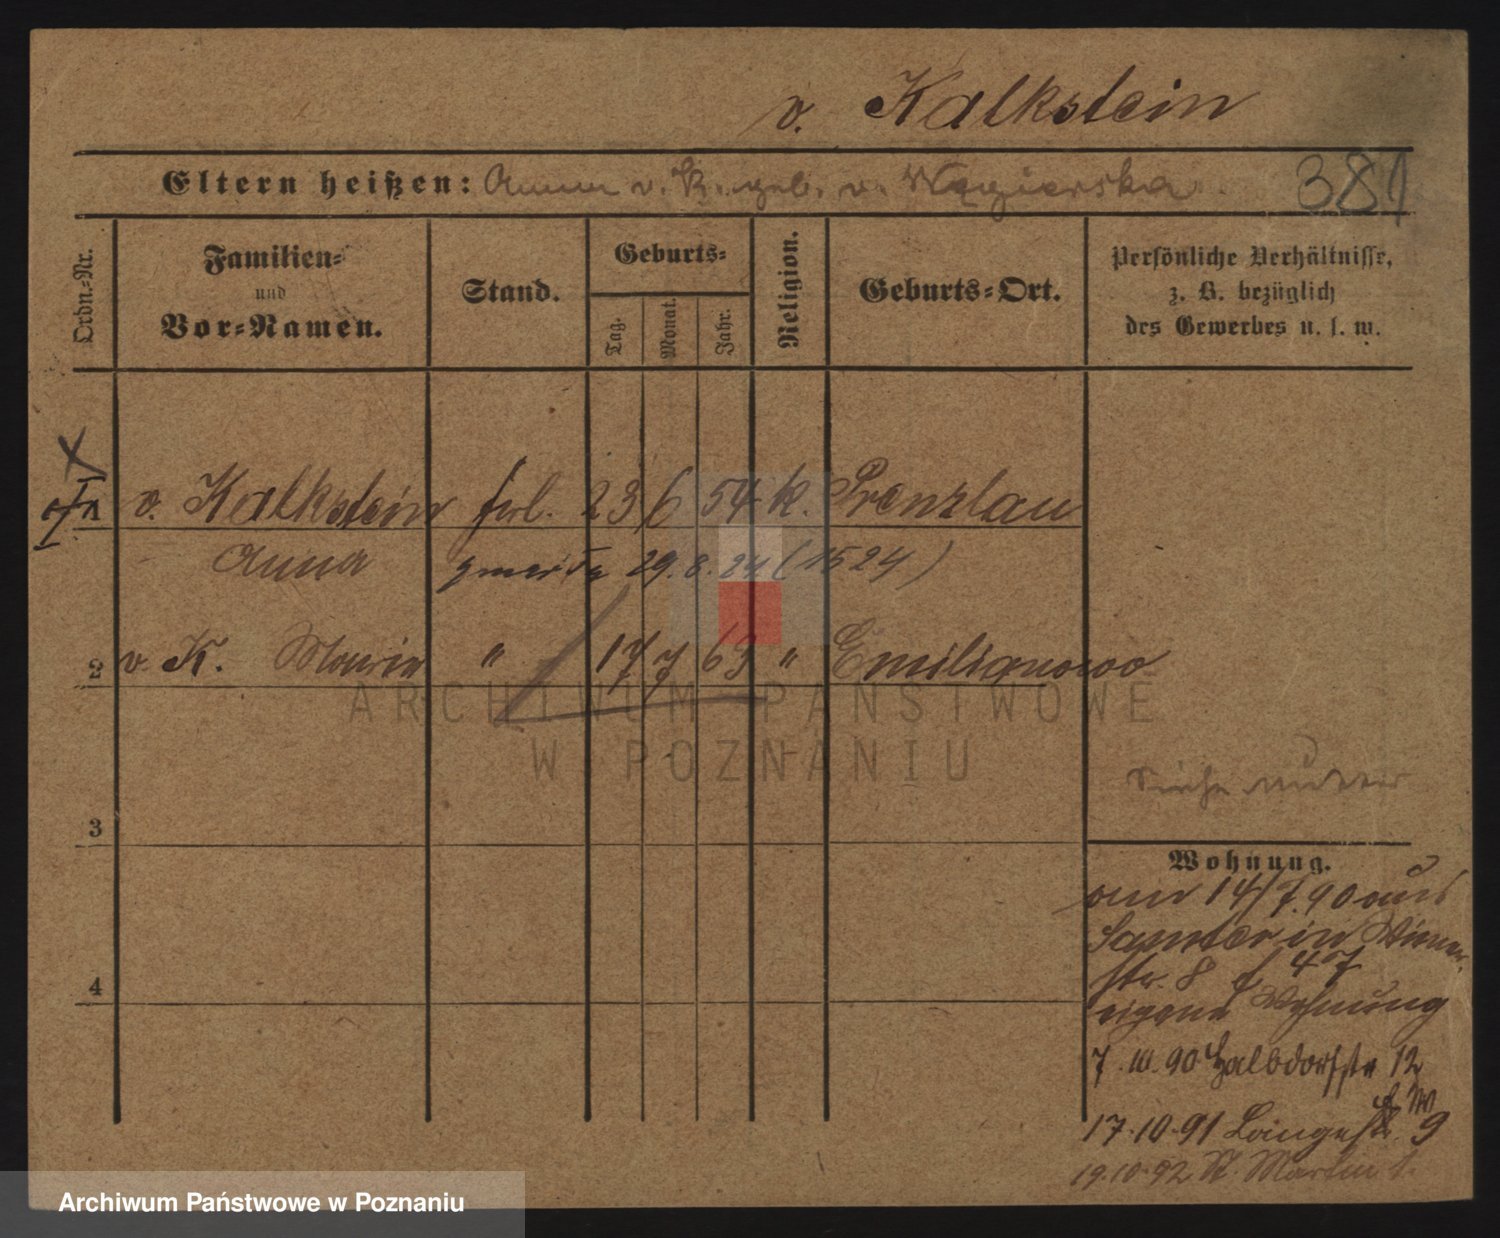 v. Kalkstein
Eltern heißen: Anna v. K. geb. v. Węgierska
381
Ordn.-Nr.
Familien-
und
Vor-Namen.
Stand.
Geburts-
Tag.
Monat.
Jahr.
Religion.
Geburts-Ort.
Persönliche Verhältnisse,
z. B. bezüglich
des Gewerbes u. s. w.
1 v. Kalkstein frl. 23 6 54 k. Prenzlau
Anna zmarła 29.8.24 (1524)
2 v. K. Maria " 17 7 63 " Emilianowo
3
Siehe Mutter
4
Wohnung.
am 14/7.90 aus
Samter in Wiener
str. 8
eigene Wohnung
7.10.90 Halbdorfstr 12
17.10.91 Langestr. 9
19.10.92 St. Martin 1.
ARCHIWUM PAŃSTWOWE
W POZNANIU
Archiwum Państwowe w Poznaniu